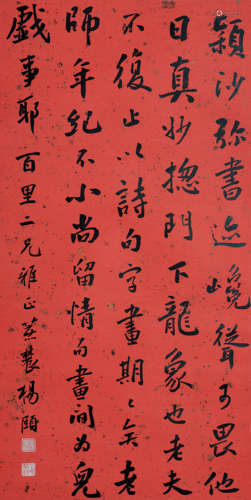 颖沙弥书迹峻耸可畏他
日真妙揔門下龍象也老夫
不復止以詩句字畫期〻矣老
師年紀不小尚留情為畫間為兒
戲事耶 百里二兄雅正 蓉裳楊頤